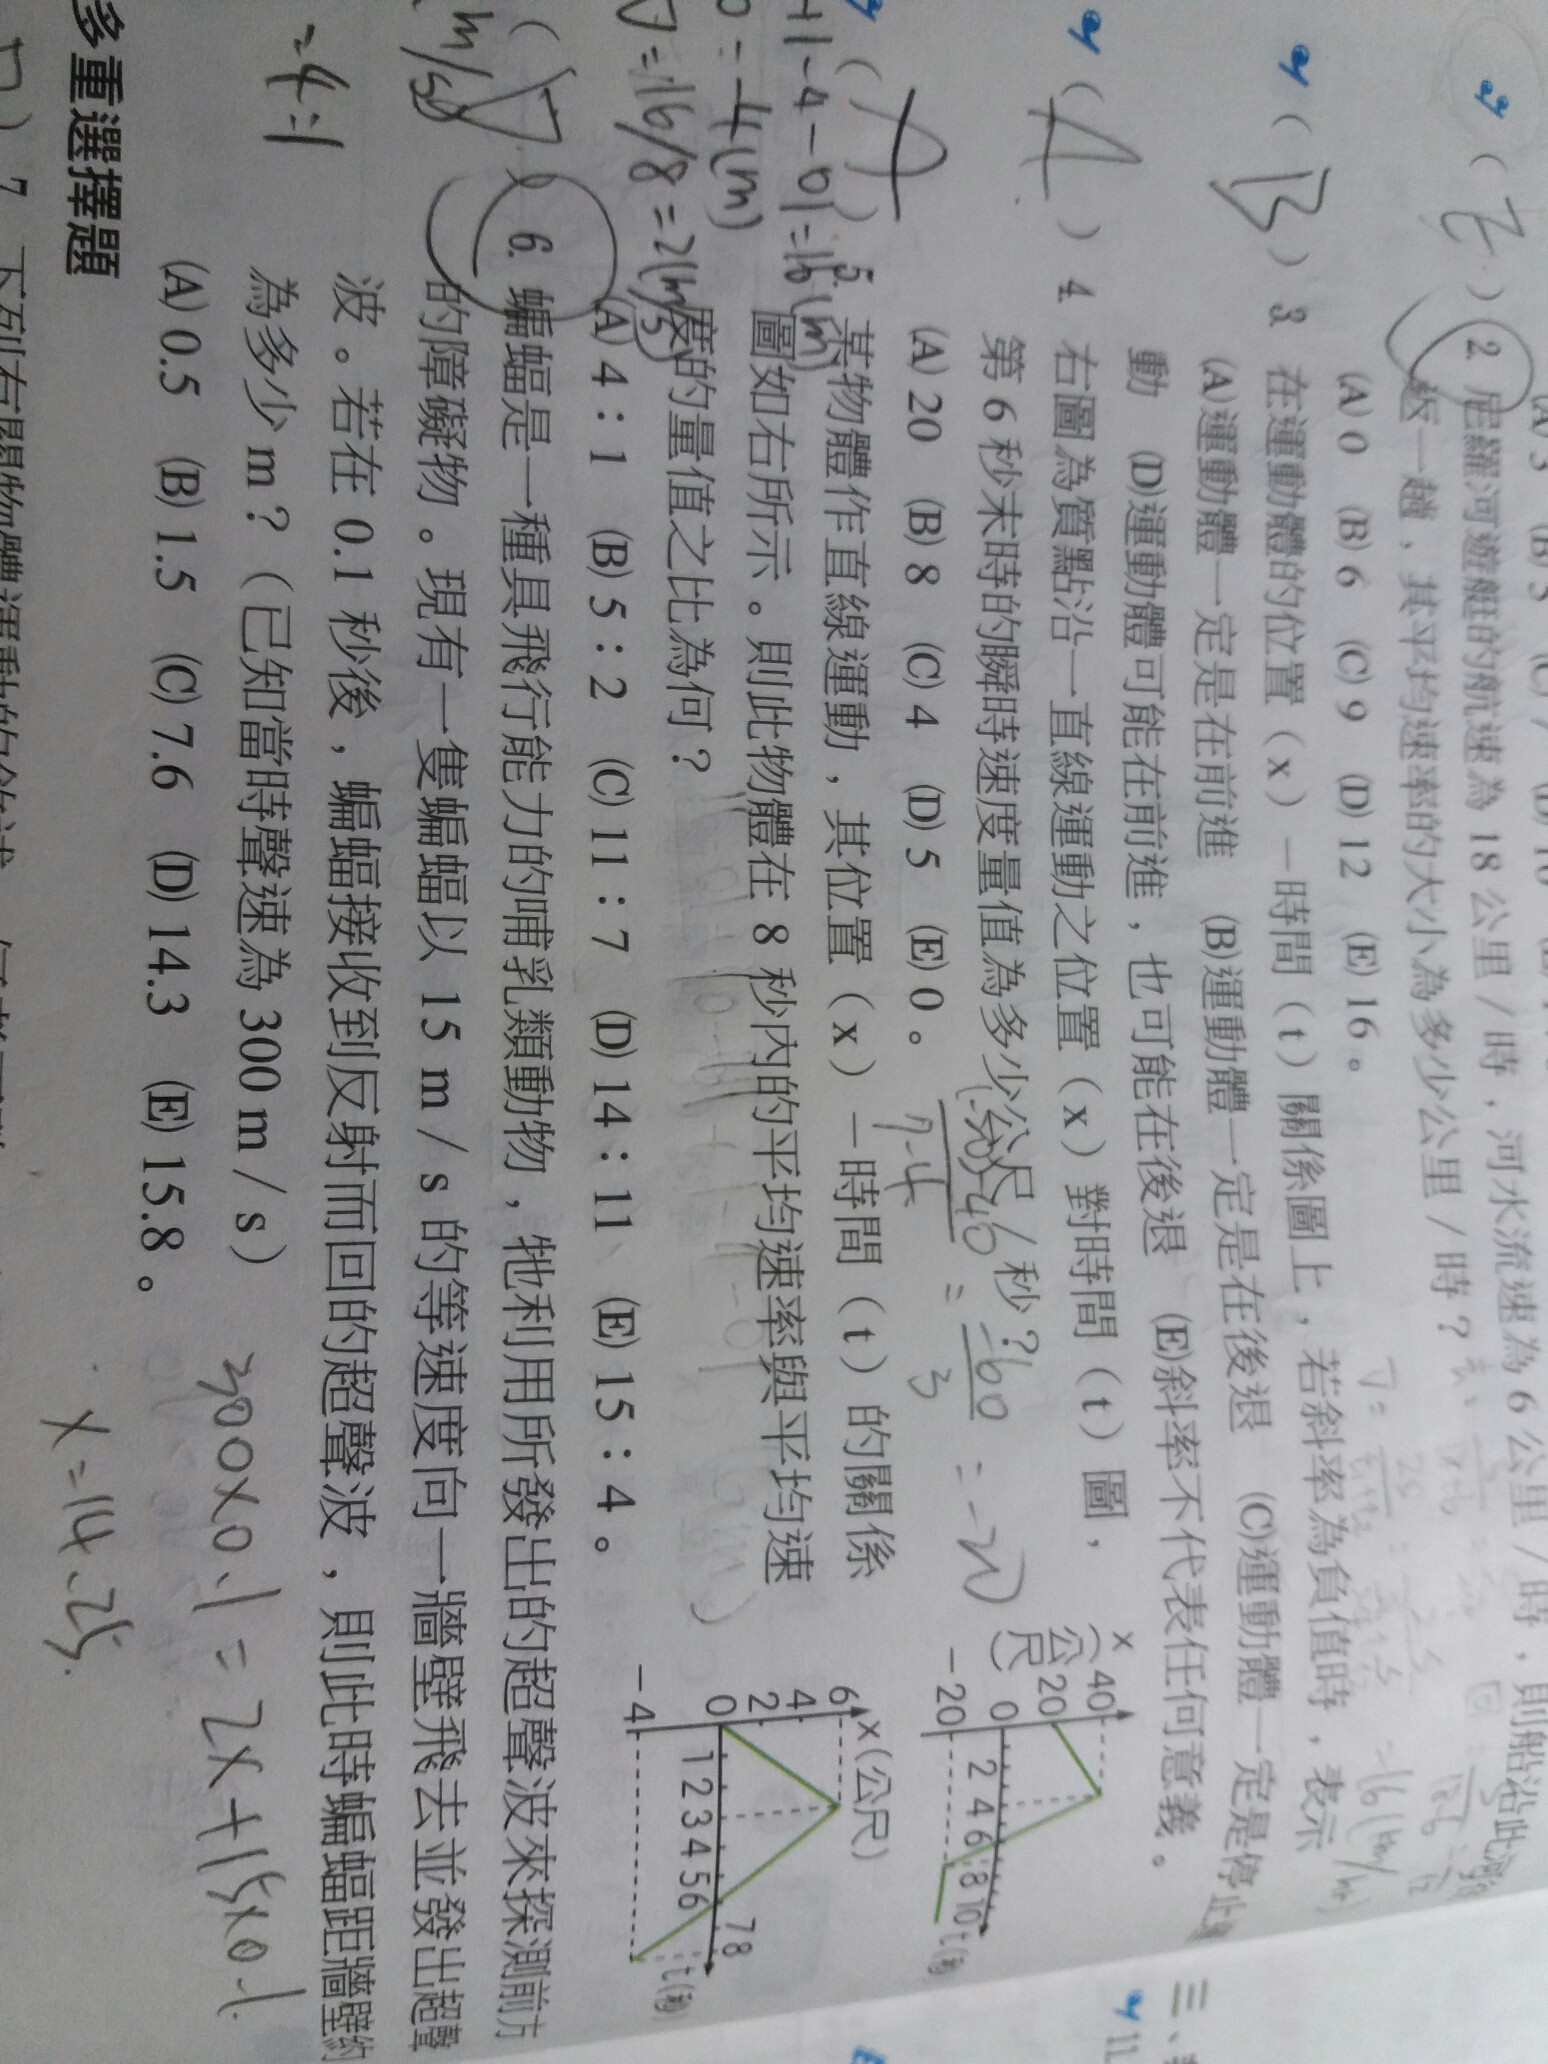 (A) 3 (B) 5 (C) 7 (D) 10
(E) 2. 尼羅河遊艇的航速為 18 公里/時,河水流速為 6 公里/時,則船沿此河
返一趟,其平均速率的大小為多少公里/時?
(A) 0 (B) 6 (C) 9 (D) 12 (E) 16。
(B) 3. 在運動體的位置(x)-時間(t)關係圖上,若斜率為負值時,表示
(A)運動體一定是在前進 (B)運動體一定是在後退 (C)運動體一定是停止
動 (D)運動體可能在前進,也可能在後退 (E)斜率不代表任何意義。
(A) 4. 右圖為質點沿一直線運動之位置(x)對時間(t)圖,
第 6 秒末時的瞬時速度量值為多少公尺/秒?
(A) 20 (B) 8 (C) 4 (D) 5 (E) 0。
(-20)-40
7-4
= -60
3
= -20
x(公尺)
40
20
0
-20
2 4 6 8 10 t(秒)
(A) 5. 某物體作直線運動,其位置(x)-時間(t)的關係
圖如右所示。則此物體在 8 秒內的平均速率與平均速
度的量值之比為何?
(A) 4:1 (B) 5:2 (C) 11:7 (D) 14:11 (E) 15:4。
+|-4-0|=16(m)
0=-4(m)
V=16/8=2(m/s)
x(公尺)
6
4
2
0
-4
1 2 3 4 5 6 7 8
t(秒)
(D) 6. 蝙蝠是一種具飛行能力的哺乳類動物,牠利用所發出的超聲波來探測前方
的障礙物。現有一隻蝙蝠以 15 m/s 的等速度向一牆壁飛去並發出超聲
波。若在 0.1 秒後,蝙蝠接收到反射而回的超聲波,則此時蝙蝠距牆壁約
為多少 m?(已知當時聲速為 300 m/s)
(A) 0.5 (B) 1.5 (C) 7.6 (D) 14.3 (E) 15.8。
m/s
=4:1
300×0.1=2x+15×0.1
x=14.25
多重選擇題
7. 下列有關物體運動的敘述
三、
11